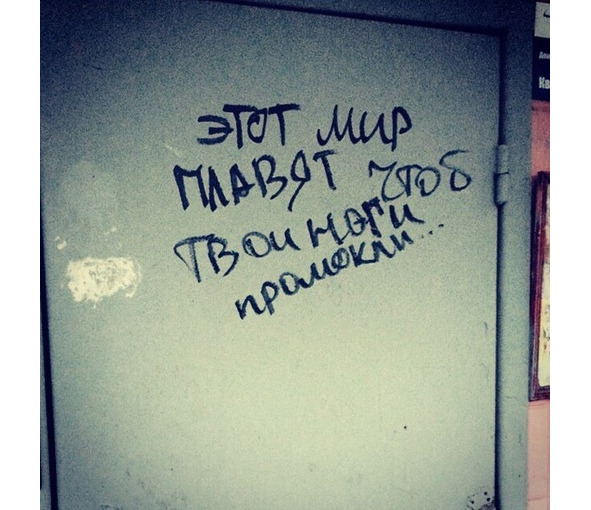 этот мир
плавят чтоб
твои ноги
промокли...